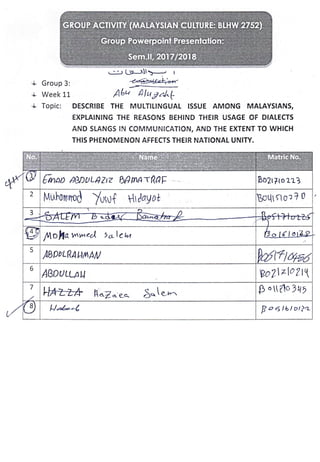 GROUP ACTIVITY (MALAYSIAN CULTURE: BLHW 2752)
Group Powerpoint Presentation:
Sem.II, 2017/2018
Group 3:
Week 11
Topic: DESCRIBE THE MULTILINGUAL ISSUE AMONG MALAYSIANS,
EXPLAINING THE REASONS BEHIND THEIR USAGE OF DIALECTS
AND SLANGS IN COMMUNICATION, AND THE EXTENT TO WHICH
THIS PHENOMENON AFFECTS THEIR NATIONAL UNITY.
No. Name Matric No.
1 EMAD ABDULAZIZ BAMATRAF B021710223
2 Muhammad Yusuf Hidayat B041510270
3 SALEM Bamatraf B051710225
4 Mohammed Salem
5 ABDULRAHMAN
6 ABDULLAH B021210214
7 HAZZA Hazaea Salem B011710345
8